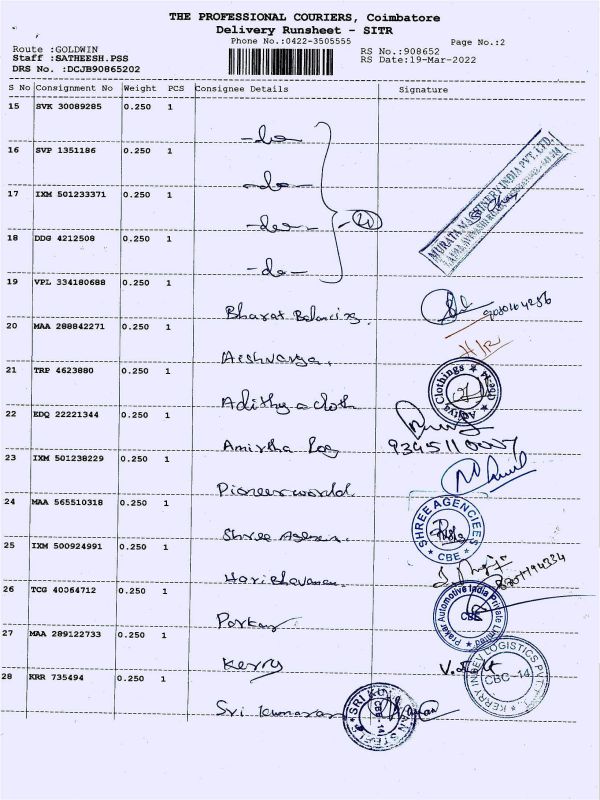 THE PROFESSIONAL COURIERS, Coimbatore
Delivery Runsheet - SITR
Phone No.:0422-3505555
Page No.:2
Route :GOLDWIN
RS No.:908652
Staff :SATHEESH.PSS
RS Date:19-Mar-2022
DRS No. :DCJB90865202
S No Consignment No Weight PCS Consignee Details Signature
15 SVK 30089285 0.250 1
-do-
16 SVP 1351186 0.250 1
-do-
17 IXM 501233371 0.250 1
-do-
18 DDG 4212508 0.250 1
-do-
MURATA MACHINERY INDIA PVT. LTD.
19 VPL 334180688 0.250 1
Bharat Balancing
20 MAA 288842271 0.250 1
Aishwarya
21 TRP 4623880 0.250 1
Adithya cloth
Aditya Clothings
22 EDQ 22221344 0.250 1
Amirtha
23 IXM 501238229 0.250 1
Pioneer world
24 MAA 565510318 0.250 1
Shree Agen
SHREE AGENCIEES
CBE
25 IXM 500924991 0.250 1
Haribhavanam
26 TCG 40064712 0.250 1
Prakar Automotive India Private Limited
CBE
27 MAA 289122733 0.250 1
Kerry
KERRY INDEV LOGISTICS PVT
CBC-14
28 KRR 735494 0.250 1
Sri Kumaran
SRI KUMARAN STEELS
CBE-14